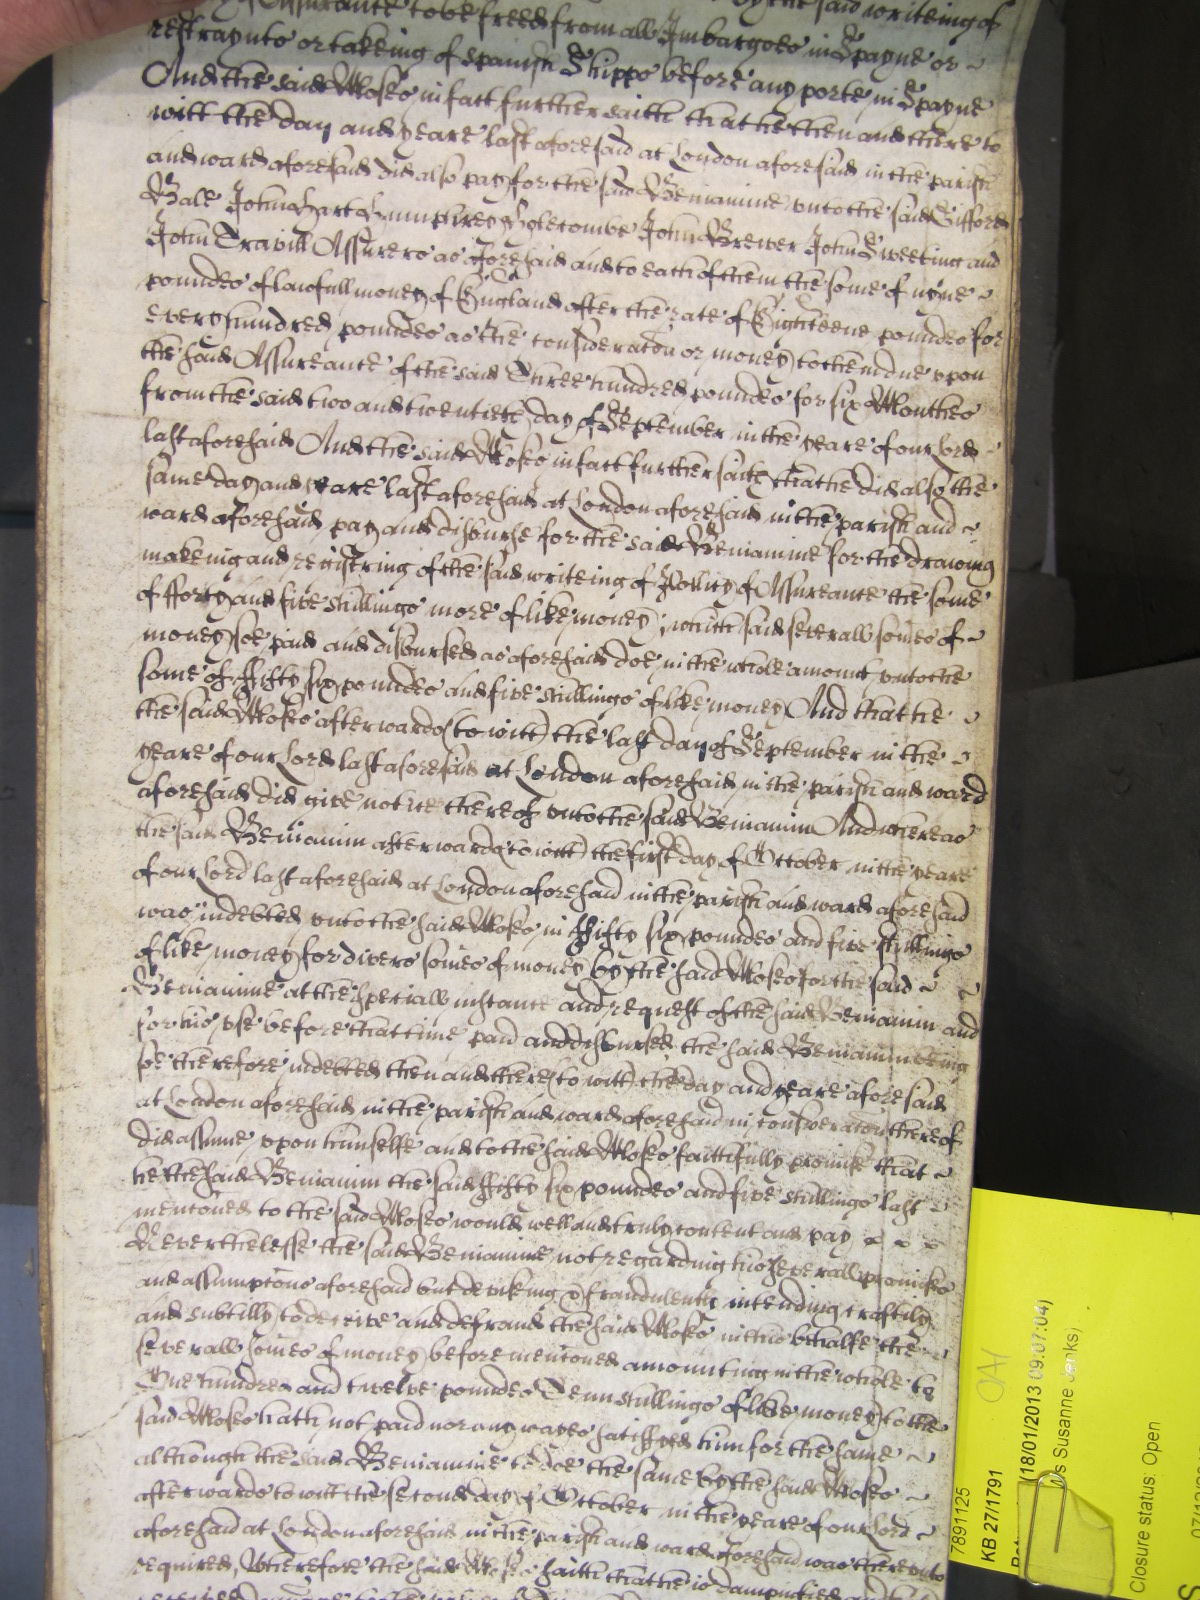 Assurance to be freed from all Imbargoes in Spayne or
restraynte or takeing of Spanish Shipps before any porte in Spayne
And the said Moses in fact further saith that he then and there to
witt the day and yeare last aforesaid at London aforesaid in the parish
and ward aforesaid did also pay for the said Beniamine unto the said Gifford
Bale John Hart Humphrey Holcombe John Brewer John Sweeting and
John Travill Assurers as aforesaid and to each of them the some of nyne
poundes of lawfull money of England after the rate of Eighteene poundes for
every hundred poundes as the consideracon or money to them due upon
the said Assureance of the said Three hundred poundes for six Monthes
from the said two and twentieth day of September in the yeare of our Lord
last aforesaid And the said Moses in fact further saith that he did also the
same day and yeare last aforesaid at London aforesaid in the parish and
ward aforesaid pay and disburse for the said Beniamine for the drawing
makeing and registring of the said writeing of Pollicy of Assureance the some
of fforty and five shillings more of like money, which said severall somes of
money soe paid and disbursed as aforesaid doe in the whole amount unto the
some of ffifty six poundes and five shillings of like money And that he
the said Moses afterwards (to witt) the last day of September in the
yeare of our Lord last aforesaid at London aforesaid in the parish and ward
aforesaid did give notice thereof unto the said Beniamin And whereas
the said Beniamin afterwards (to witt) the first day of October in the yeare
of our Lord last aforesaid at London aforesaid in the parish and ward aforesaid
was indebted unto the said Moses in ffifty six poundes and five shillings
of like money for divers somes of money by the said Moses for the said
Beniamine at the speciall instance and request of the said Beniamin and
for his use before that time paid and disbursed the said Beniamin being
soe therefore indebted then and there (to witt) the day and yeare aforesaid
at London aforesaid in the parish and ward aforesaid in consideracon thereof
did assume upon himselfe and to the said Moses faithfully promise that
he the said Beniamin the said ffifty six poundes and five shillings last
mencioned to the said Moses would well and truly content and pay
Neverthelesse the said Beniamine not regarding his severall promises
and assumptions aforesaid but deviseing & fraudulently intending craftily
and subtilly to deceive and defraud the said Moses in this behalfe the
severall somes of money before mencioned amounting in the whole to
One hundred and twelve poundes Tenn shillings of like money to the
said Moses hath not paid nor any wayes satisfyed him for the same
although the said Beniamine to doe the same by the said Moses
afterwards to witt the second day of October in the yeare of our Lord
aforesaid at London aforesaid in the parish and ward aforesaid was thereunto
required, Wherefore the said Moses saith that he is dampnified and
7891125
KB 27/1791
(18/01/2013 09:07:04)
Susanne Jenks)
Closure status: Open